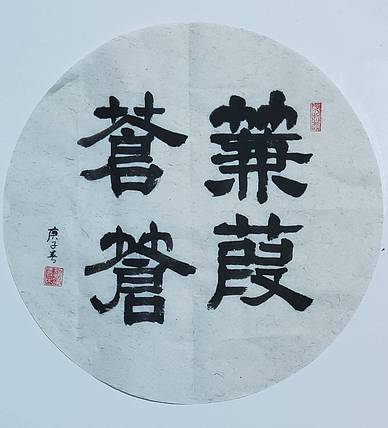 蒹葭
蒼蒼
庚子春